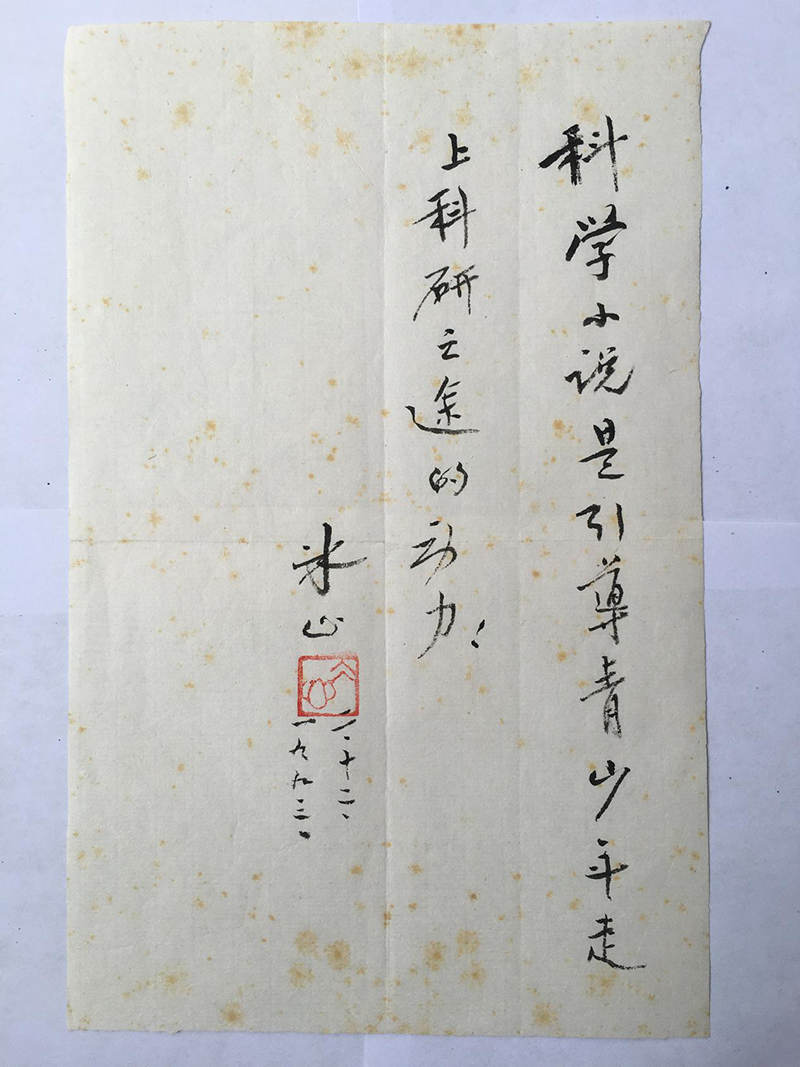 科学小说是引导青少年走
上科研之途的动力！
冰心
一、十二、
一九九三、